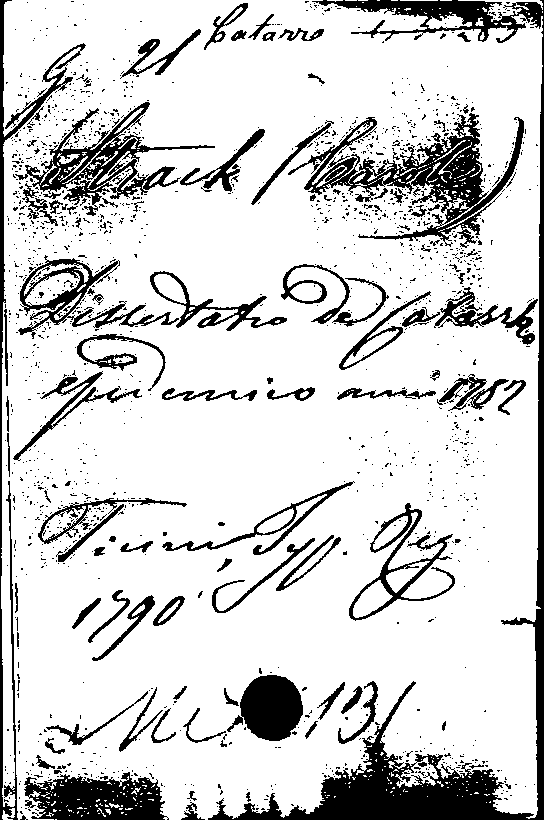 Catarro
G. 21
Strack (Carolus)
Dissertatio de Catarrho
epidemico anni 1782
Ticini, Typ. Reg.
1790
131